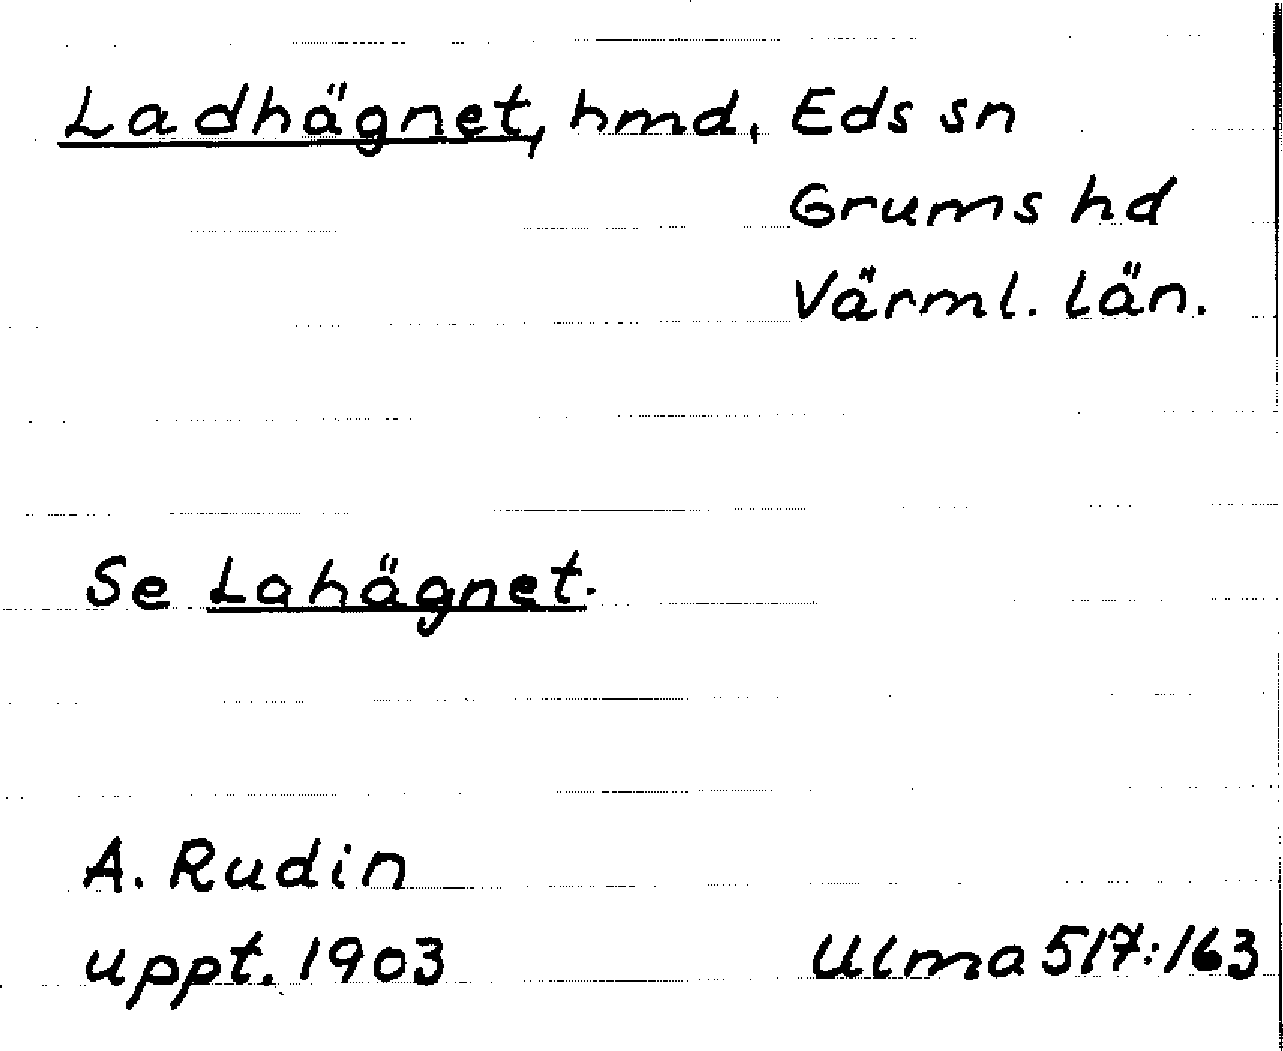 Ladhägnet, hmd, Eds sn
Grums hd
Värml. län.
Se Lahägnet.
A. Rudin
uppt. 1903
Ulma 517:163